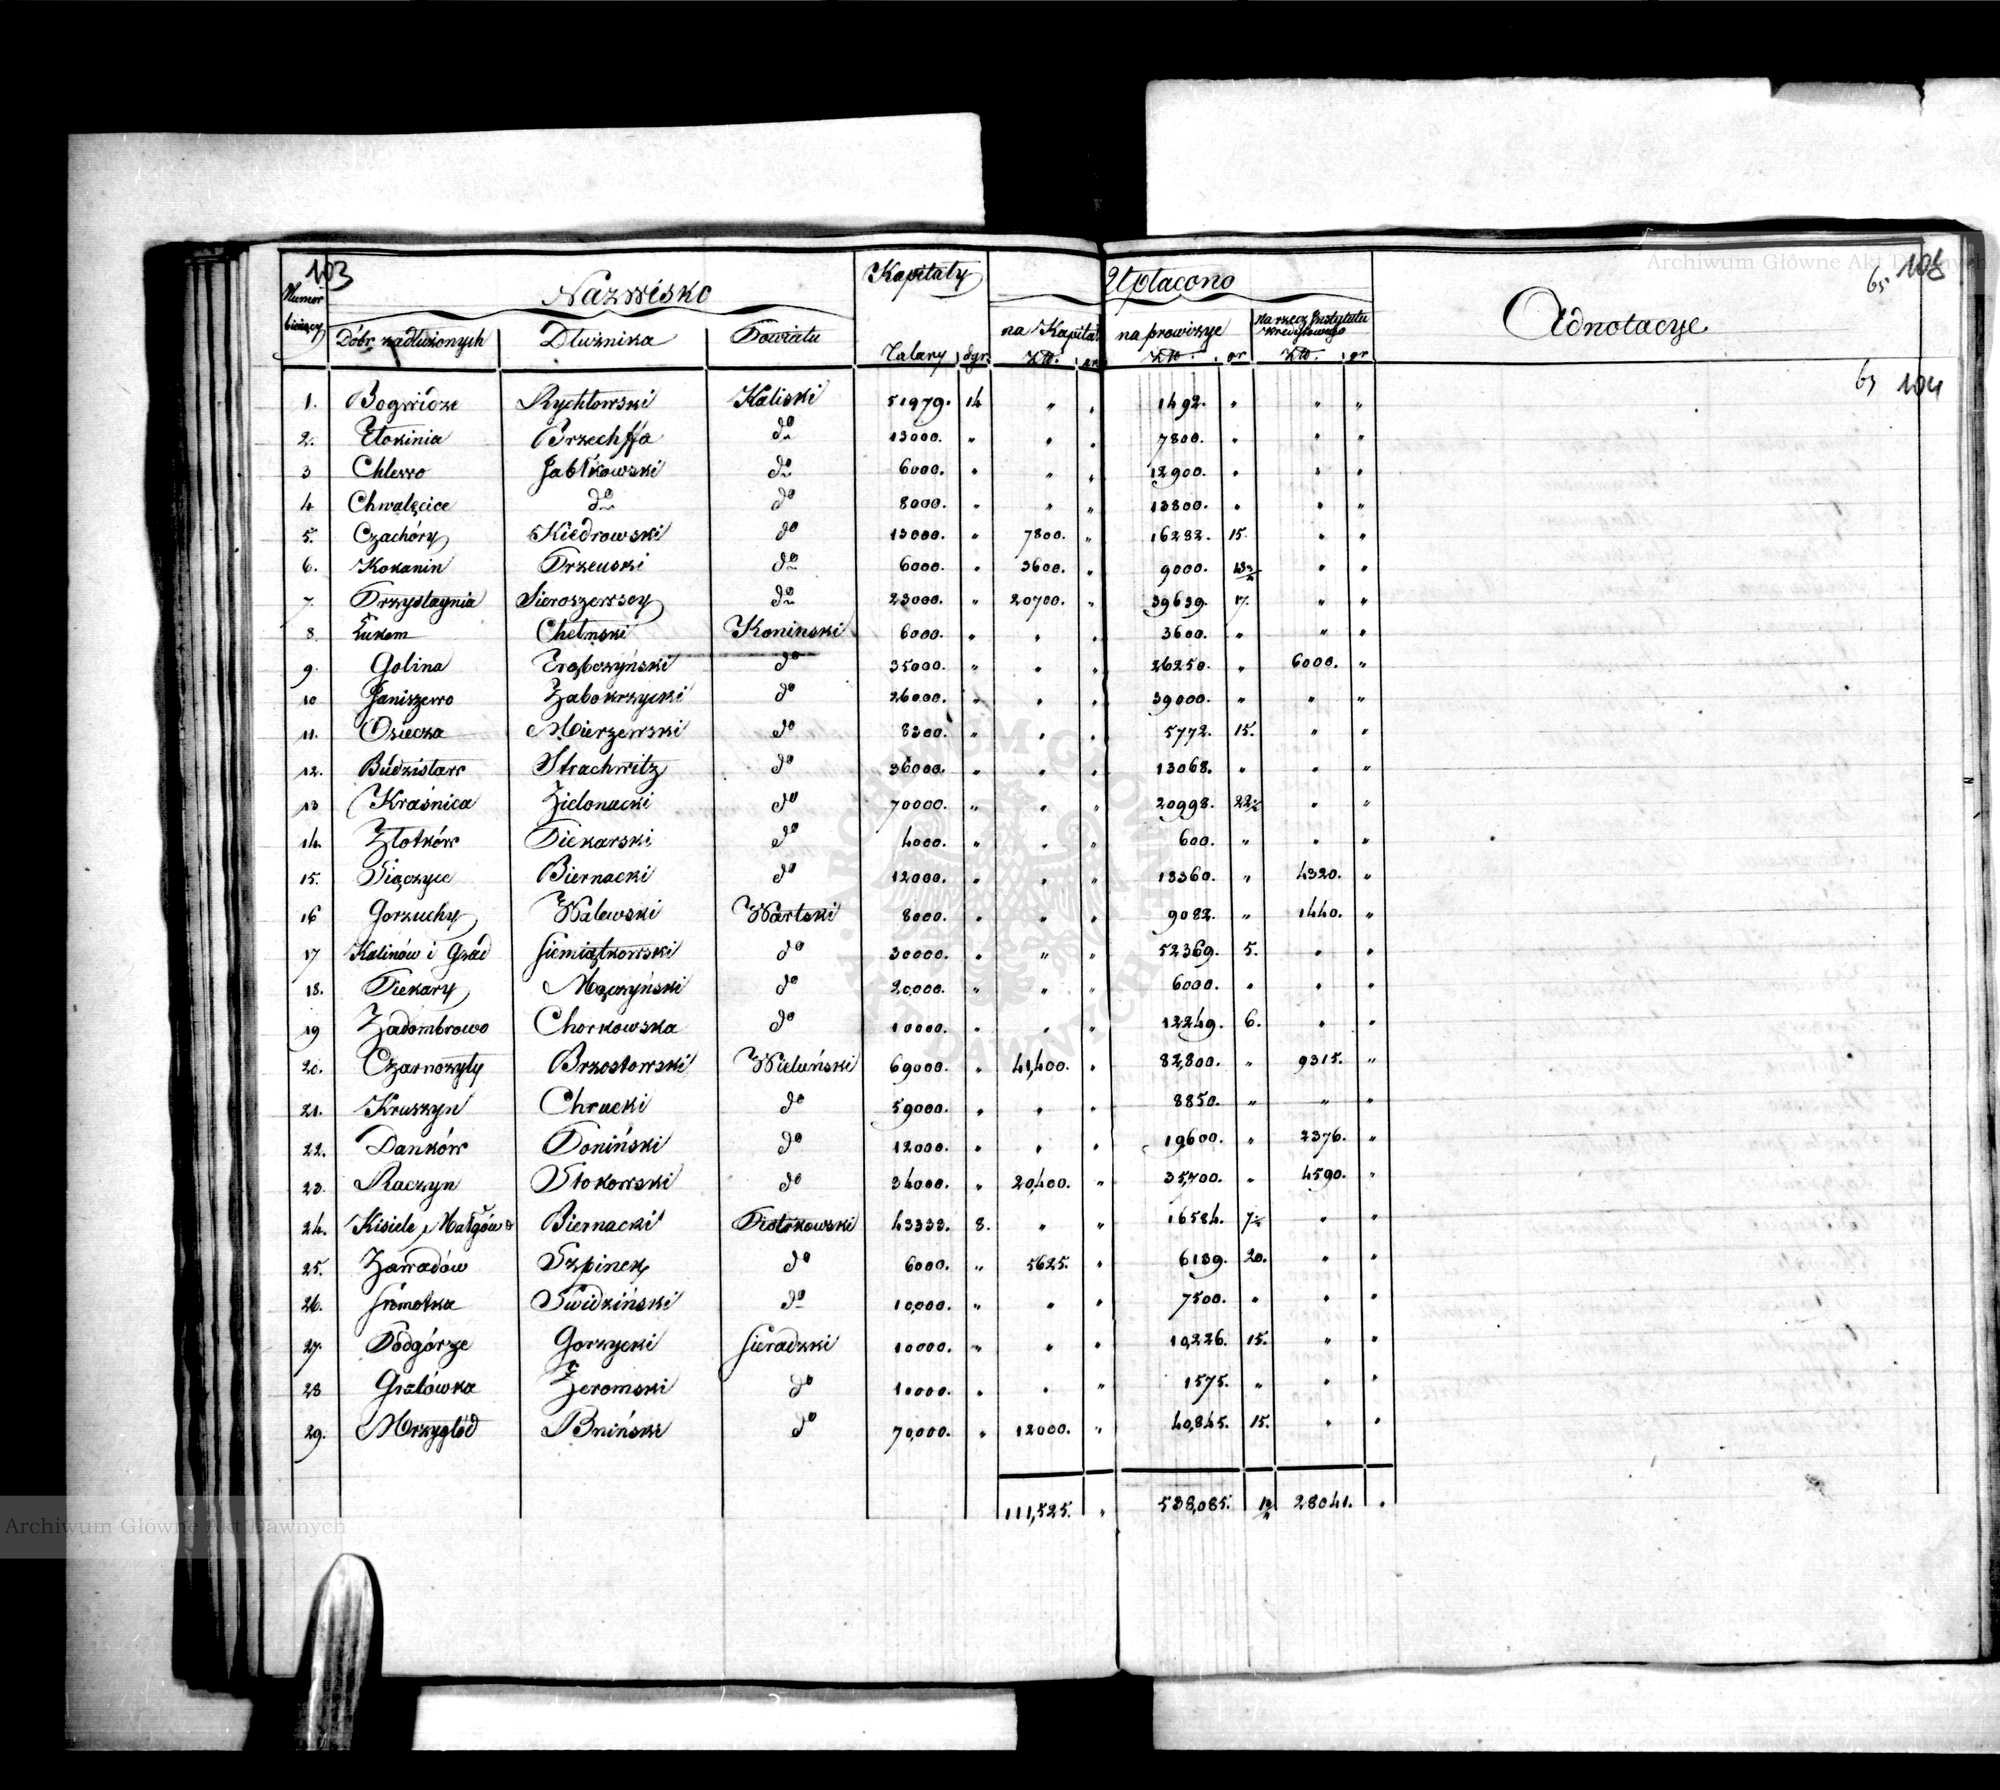 103
65 108
Numer bieżący
Nazwisko
Kapitały
Upłacono
Adnotacye
Dóbr zadłużonych Dłużnika Powiatu Talary dgr. na Kapitał Złt. gr na prowizye Złt. gr na rzecz Instytutu Kredytowego Złt. gr
63 104
1. Bogwidze Rychłowski Kaliski 51979. 14 " " 1492. " " "
2. Tłokinia Brzechffa do 13000. " " " 7800. " " "
3 Chlewo Jabłkowski do 6000. " " " 12900. " " "
4 Chwalęcice do do 8000. " " " 13800. " " "
5. Czachóry Kiedrowski do 13000. " 7800. " 16282. 15. " "
6. Kokanin Trzeuski do 6000. " 3600. " 9000. " "
7. Przystaynia Sieroszewscy do 23000. " 20700. " 39639. 17. " "
8. Łukom Chełmski Koninski 6000. " " " 3600. " " "
9. Golina Trąbczyński do 35000. " " " 26250. " 6000. "
10 Janiszewo Zabokrzycki do 26000. " " " 39000. " " "
11. Osiecza Mierzewski do 8300. " " " 5772. 15. " "
12. Budzisław Strachwitz do 36000. " " " 13068. " " "
13 Kraśnica Zielonacki do 70000. " " " 20998. 22½ " "
14. Złotków Piekarski do 4000. " " " 600. " " "
15. Siączyce Biernacki do 12000. " " " 18360. " 4320. "
16 Gorzuchy Walewski Wartski 8000. " " " 9082. " 1440. "
17 Kalinów i Grad Siemiątkowski do 30000. " " " 52369. 5. " "
18. Piekary Mączyński do 20,000. " " " 6000. " " "
19 Zadombrowo Chorkowska do 10000. " " " 12249. 6. " "
20. Czarnożyły Brzostowski Wieluński 69000. " 41,400. " 82,800. " 9315. "
21. Kruszyn Chrucki do 59000. " " " 8850. " " "
22. Danków Poniński do 12000. " " " 19,600. " 2376. "
23. Raczyn Stokowski do 34000. " 20,400. " 35,700. " 4590. "
24. Kisiele, Małgów Biernacki Piotrkowski 43333. 8. " " 16584. 7½ " "
25. Zawadów Szpinek do 6000. " 5625. " 6189. 20. " "
26. Sromotka Swidziński do 10,000. " " " 7500. " " "
27. Podgórze Gorzycki Sieradzki 10000. " " " 10,226. 15. " "
28 Grałówka Żeromski do 10000. " " " 1575. " " "
29. Mrzygłód Bniński do 70,000. " 12000. " 40,845. 15. " "
111,525. " 538,085. 28041. "
Archiwum Główne Akt Dawnych
Archiwum Główne Akt Dawnych
ARCHIWUM GŁÓWNE AKT DAWNYCH